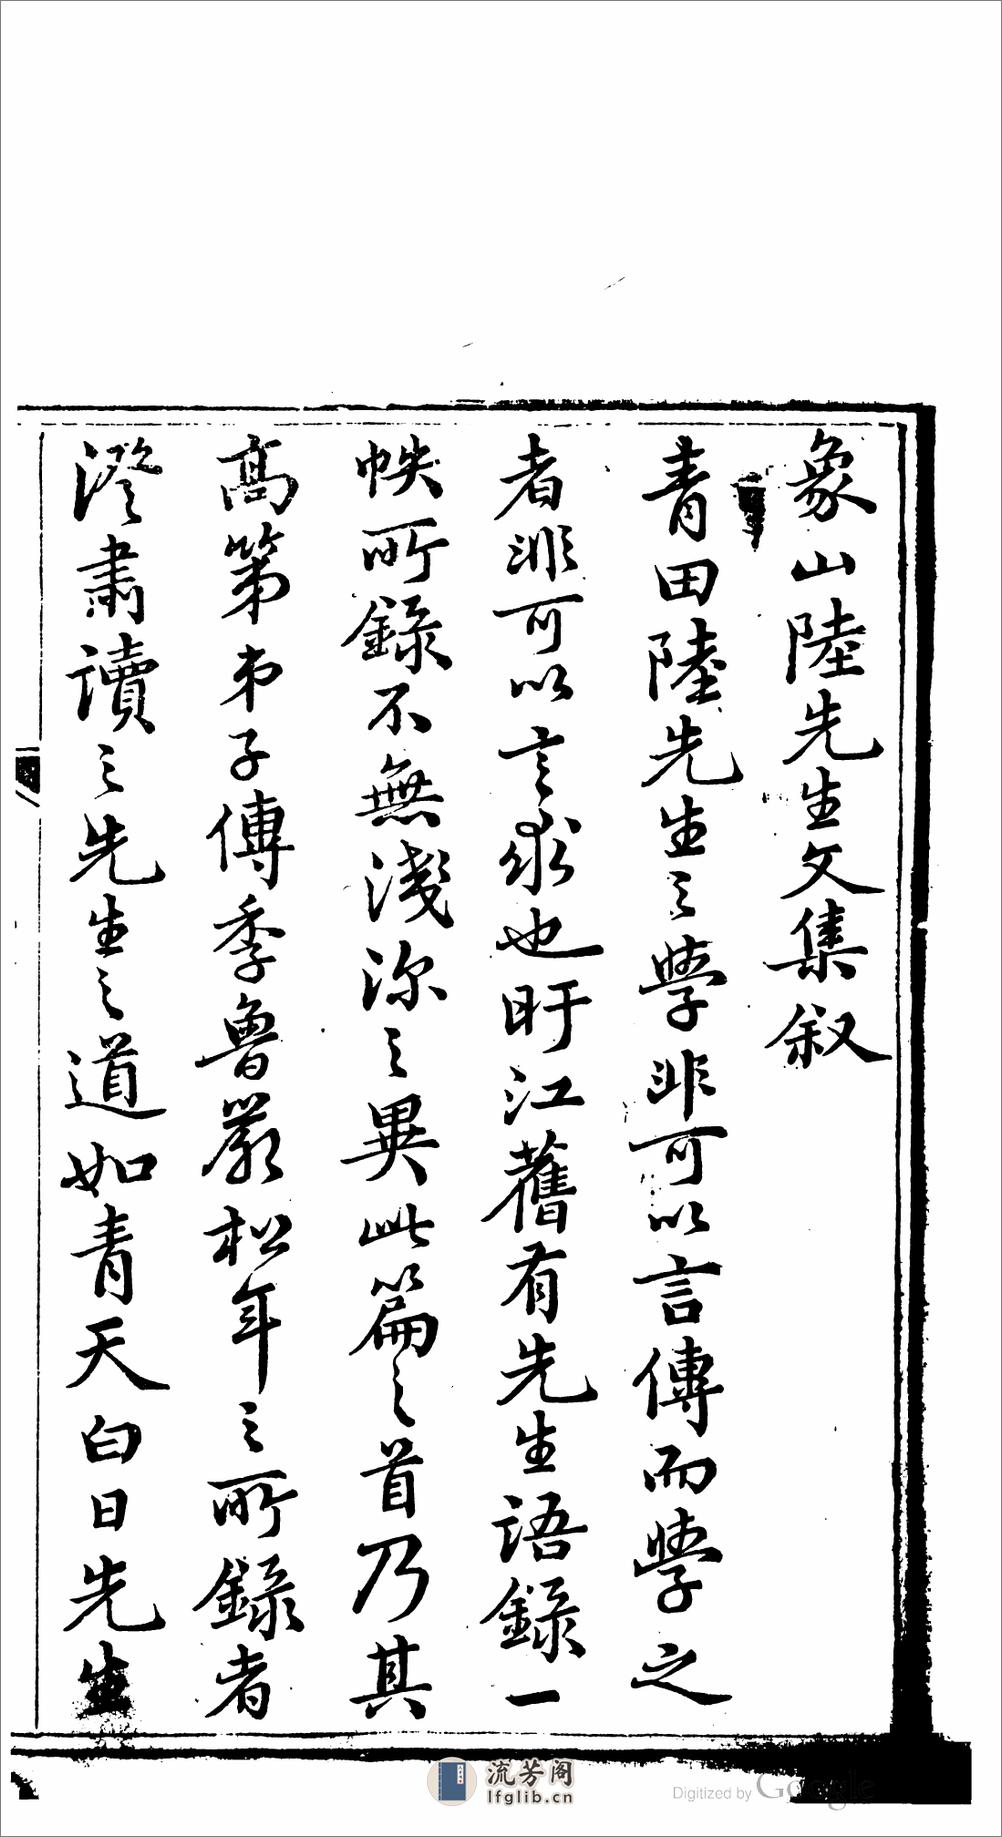 象山陸先生文集叙
青田陸先生之學非可以言傳而學之
者非可以言求也旴江舊有先生語錄一
帙所錄不無淺深之異此篇之首乃其
高第弟子傅季魯嚴松年之所錄者
澄肅讀之先生之道如青天白日先生
流芳阁
lfglib.cn
Digitized by Google